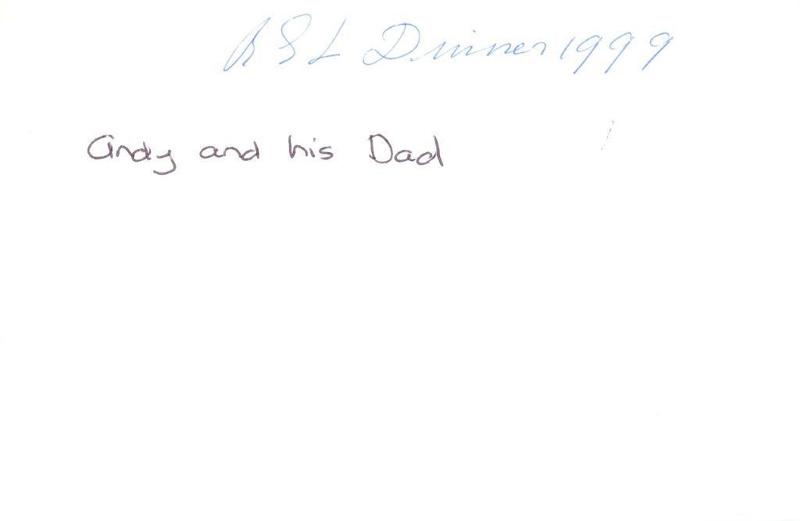 RSL Dinner 1999
Andy and his Dad